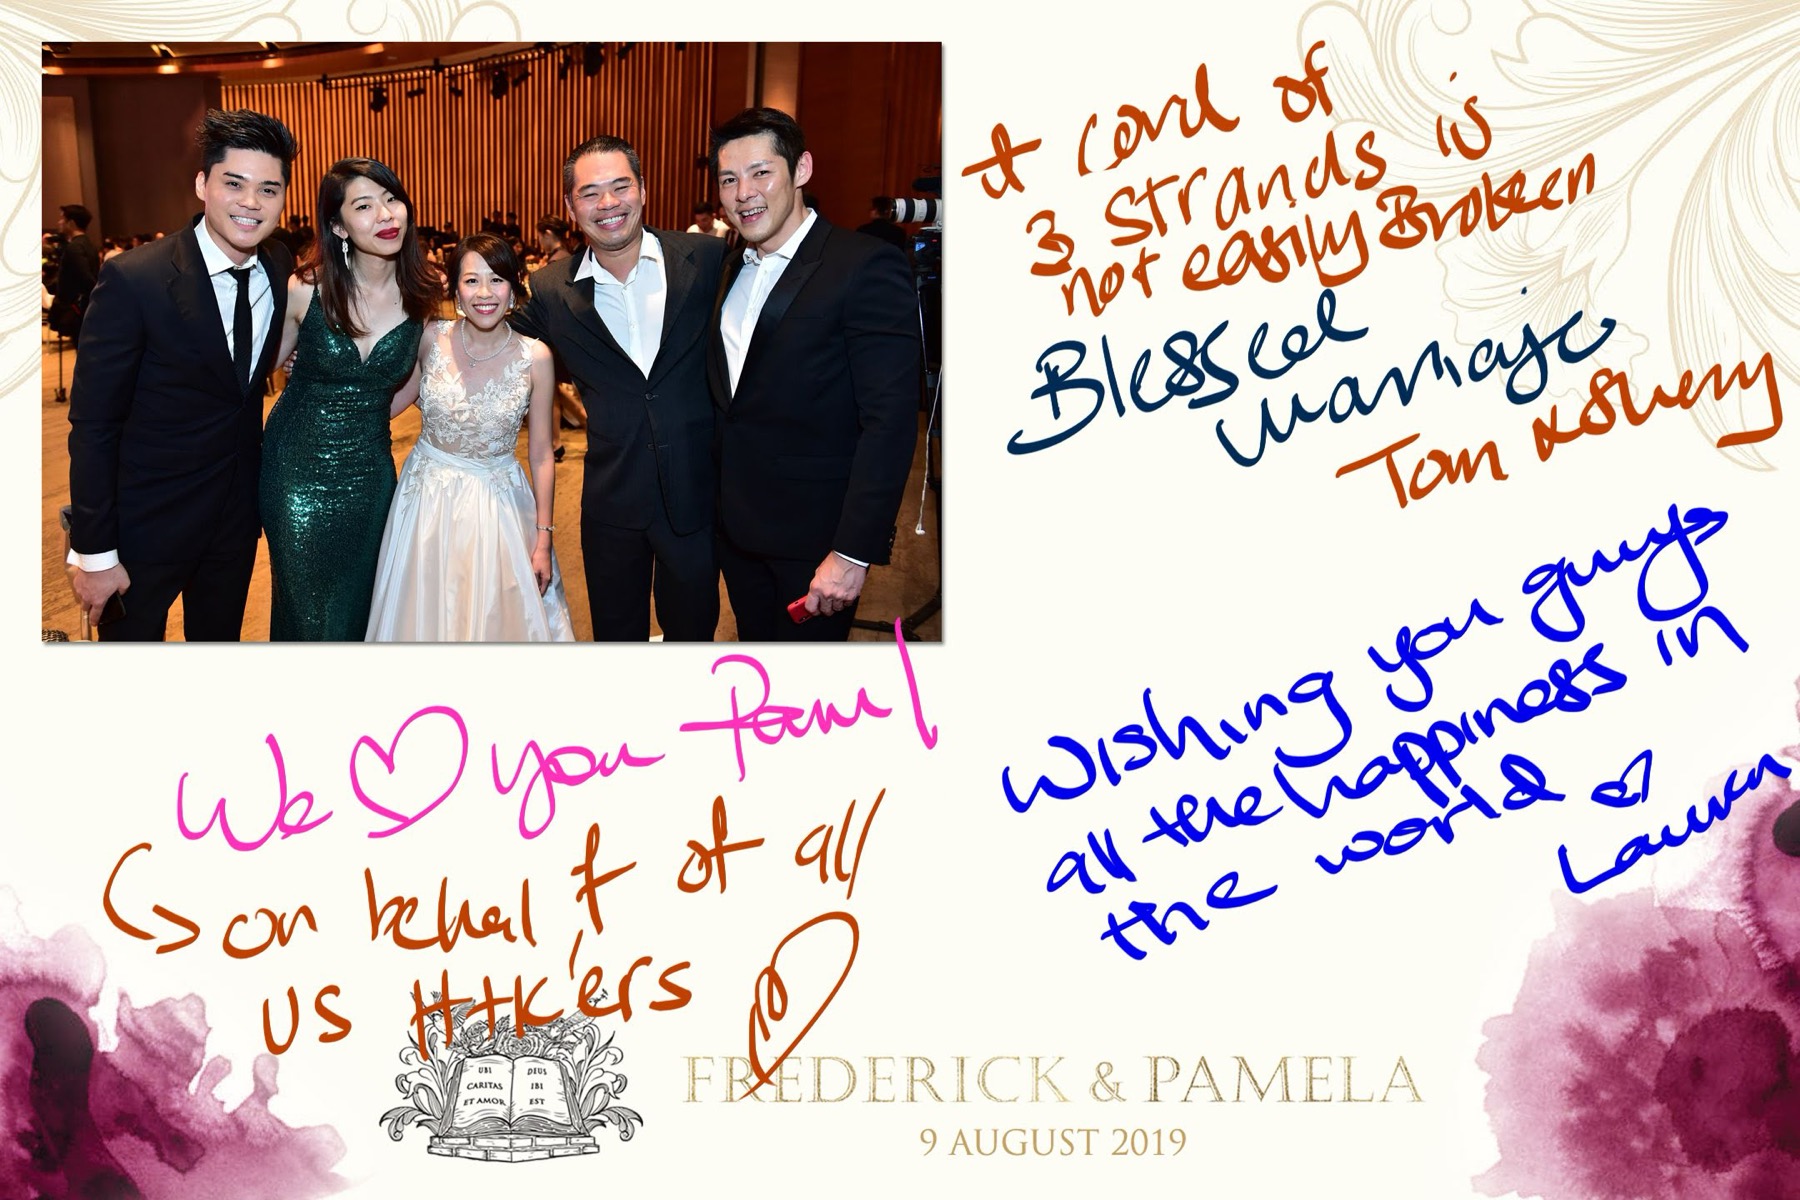 A cord of
3 strands is
not easily Broken
Blessed
marriage
Tom & Shery
Wishing you guys
all the happiness in
the world
Lauren
We ♡ you Pam!
on behalf of all
us HHK'ers
UBI
CARITAS
ET AMOR
DEUS
IBI
EST
FREDERICK & PAMELA
9 AUGUST 2019